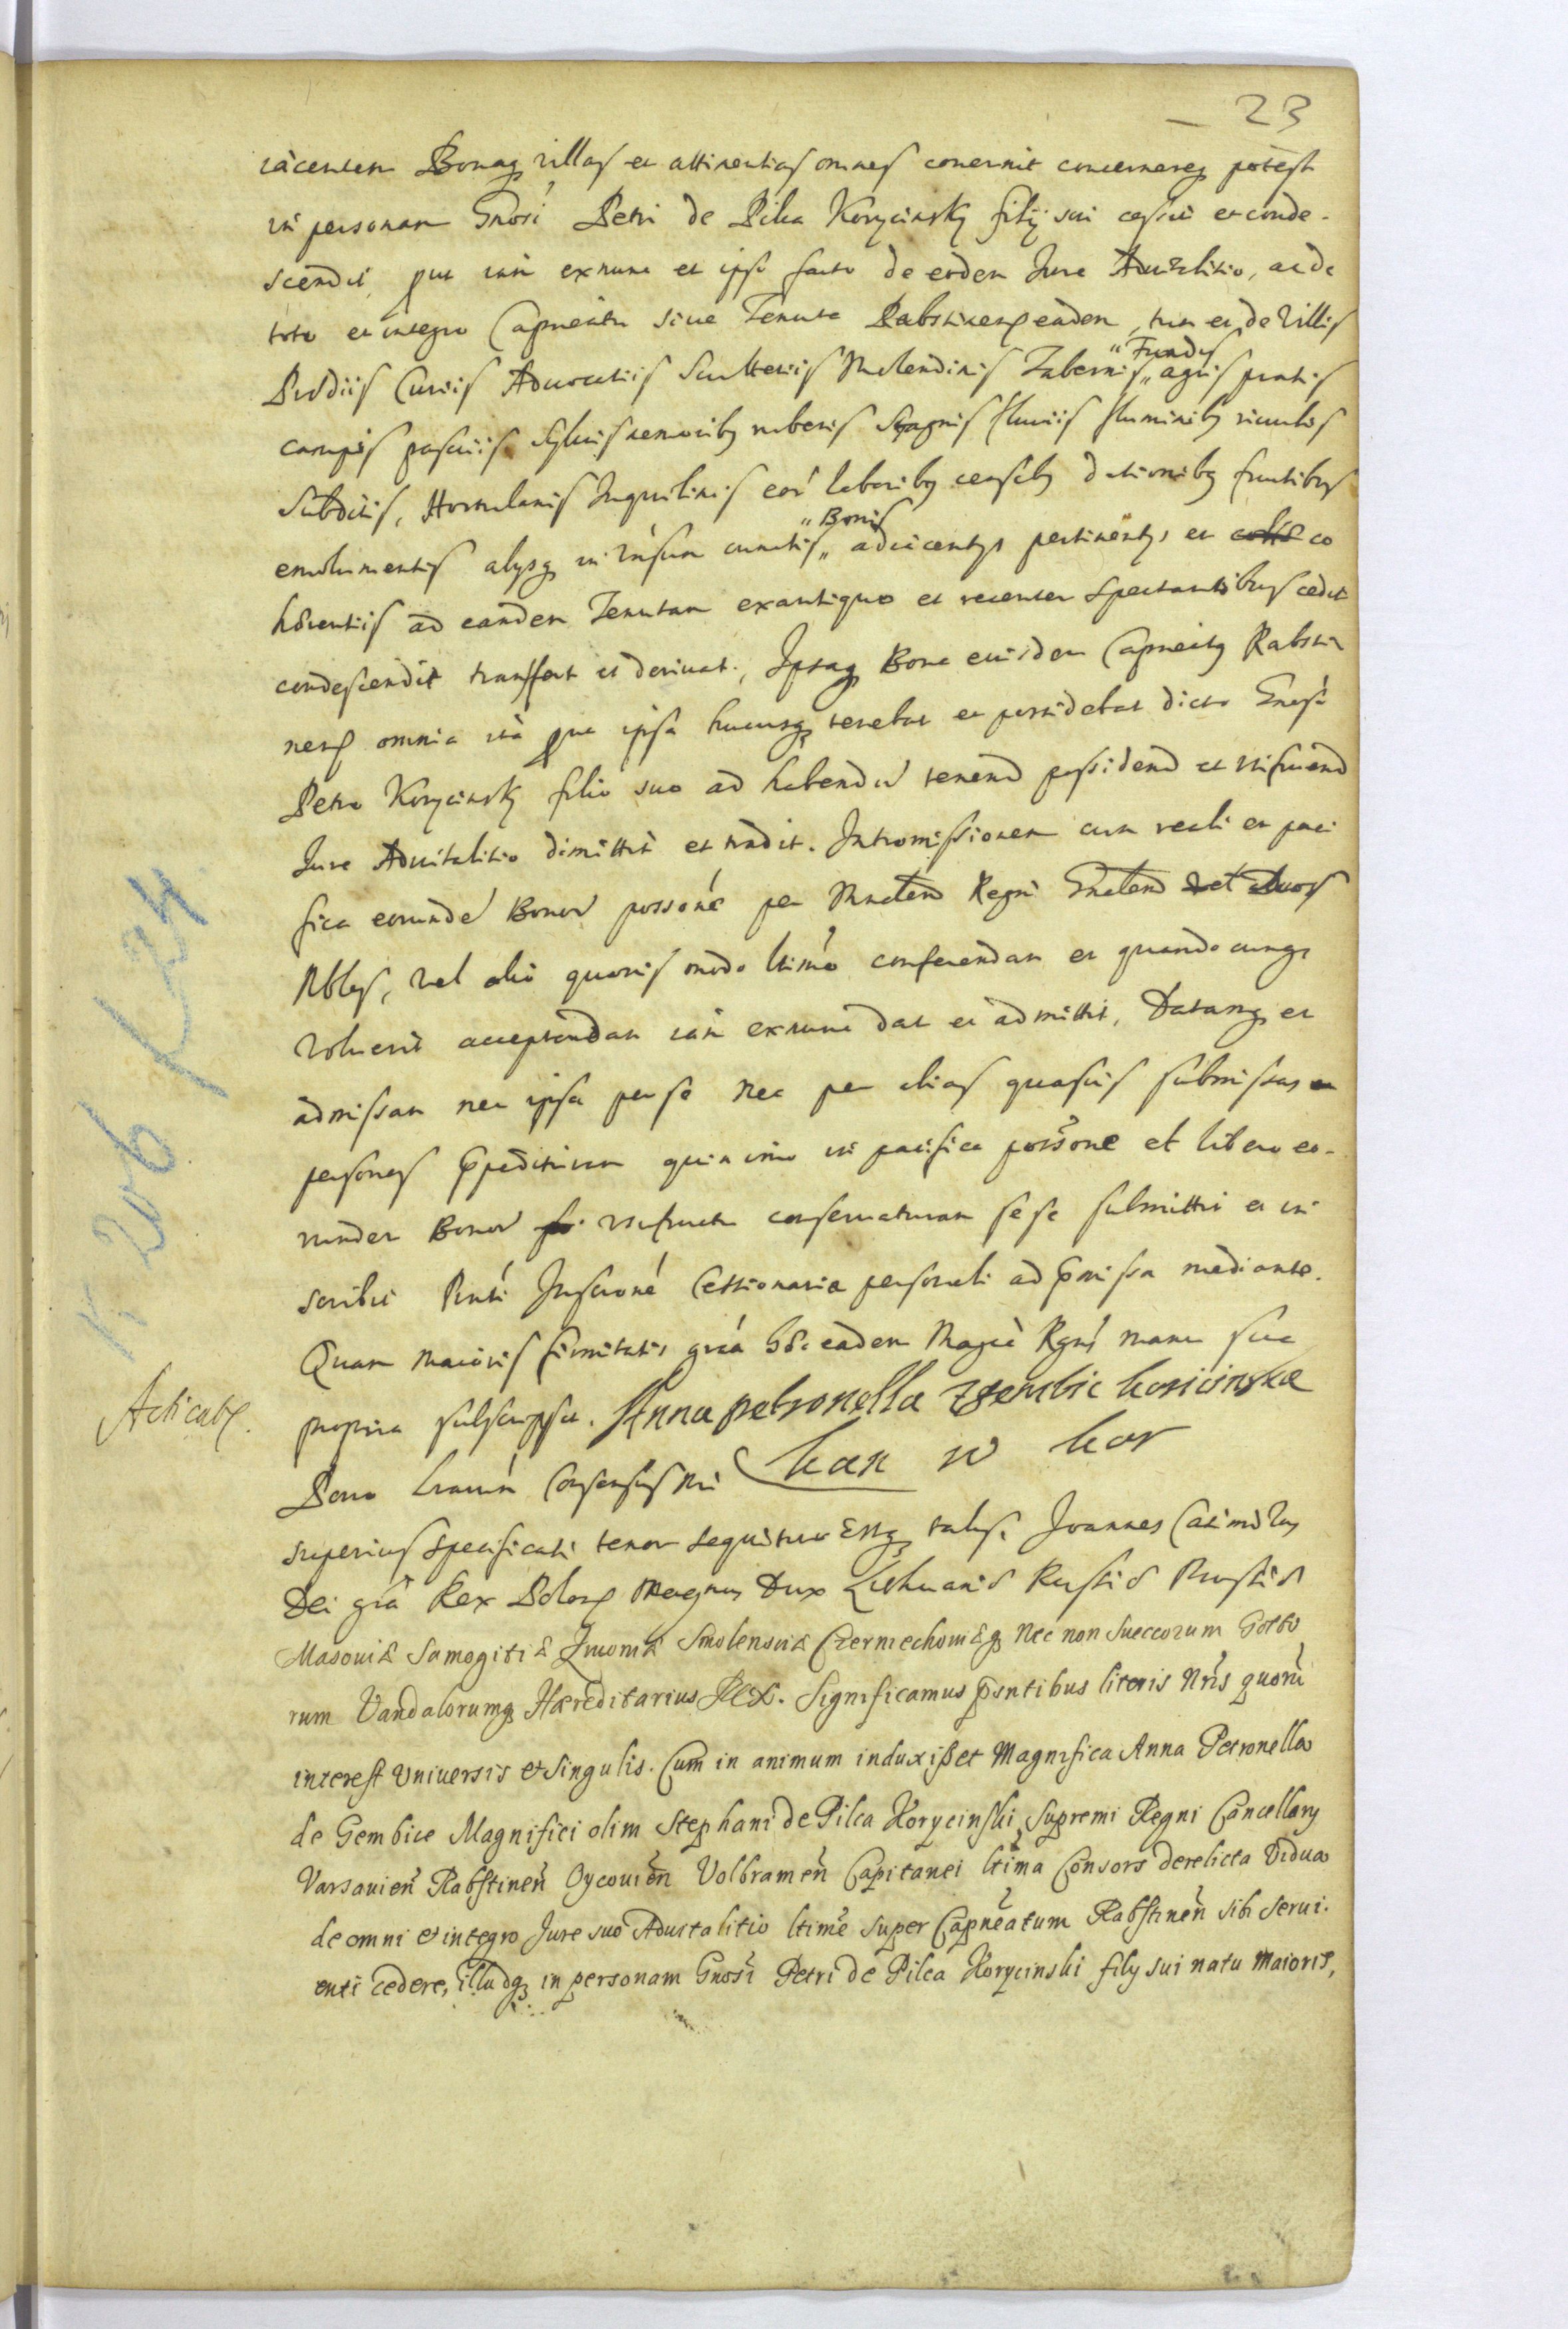 23
iacenten Bonaq villas et attinentias omnes concernit concernereq potest
in personam Gnosi Petri de Pilca Korycinsky filij sui cessit et conde-
scendit, put iam exnunc et ipso facto de eodem Jure Aduitalitio, ac de
toto et integro Capneatu siue Tenuta Rabstinen eadem, tum et de Villis
Prædiis Curiis Aduocatiis Scultetiis Molendinis Tabernis "Fundis" agris pratis
campis pascuis syluis nemoribq rubetis stagnis fluuiis fluminibq riuulis
Subditis, Hortulanis Inquilinis eor laboribq censibq dationibq fructibus
emolumentis alysq in Vnsum cunctis "Bonis" adiacentys pertinentys et co
hærentiis ad eandem Tenutam exantiquo et recenter spectantibus cedit
condescendit transfert et deriuat, Ipsaq Bona eiusdem Capneatq Rabsti
nen omnia ità put ipsa hucusq tenebat et possidebat dicto Gnoso
Petro Korycinsky filio suo ad habendu tenend possidend et utifruend
Jure Aduitalitio dimittit et tradit. Intromissionem cum reali et paci
fica eorunde Bonor possone per Mnctem Regni Gnalem et duos
Nbles, vel alio quouis modo ltimo conferendam et quandocunq
voluerit acceptandam iam exnunc dat et admittit, Datamq et
admissam nec ipsa per se nec per alias quasuis submissas
personas ppedituram quin imo in pacifica possone et libero eo-
rundem Bonor usufructu conseruaturam sese submittit et in
scribit Pnti Inscrone Cessionaria personali ad pmissa mediante.
Quam maioris firmitatis gra hæc eadem Magca Rgns manu sua
propria subscripsit. Anna petronella zgembic koricinska
Acticatq.
kan w kor
Porro Lrarum Consensus Nri
superius specificati tenor sequitur Estq talis. Joannes Casimirus
Dei gra Rex Polon Magnus Dux Lithuaniæ Russiæ Prussiæ
Masouiæ Samogitiæ Liuoniæ Smolensciæ Czerniechouiæq nec non Sueccorum Gotto
rum Vandalorumq Hæreditarius REX. Significamus pntibus literis Nris quoru
interest Vniuersis et singulis. Cum in animum induxißet Magnifica Anna Petronella
de Gembice Magnifici olim Stephani de Pilca Korycinski Supremi Regni Cancellary
Varsauien Rabstinen Oycouien Volbramen Capitanei ltima Consors derelicta Vidua
de omni et integro Jure suo Aduitalitio ltime super Capneatum Rabstinen sibi serui-
enti cedere, illudq in personam Gnosi Petri de Pilca Korycinski fily sui natu maioris,
K 206 K 24